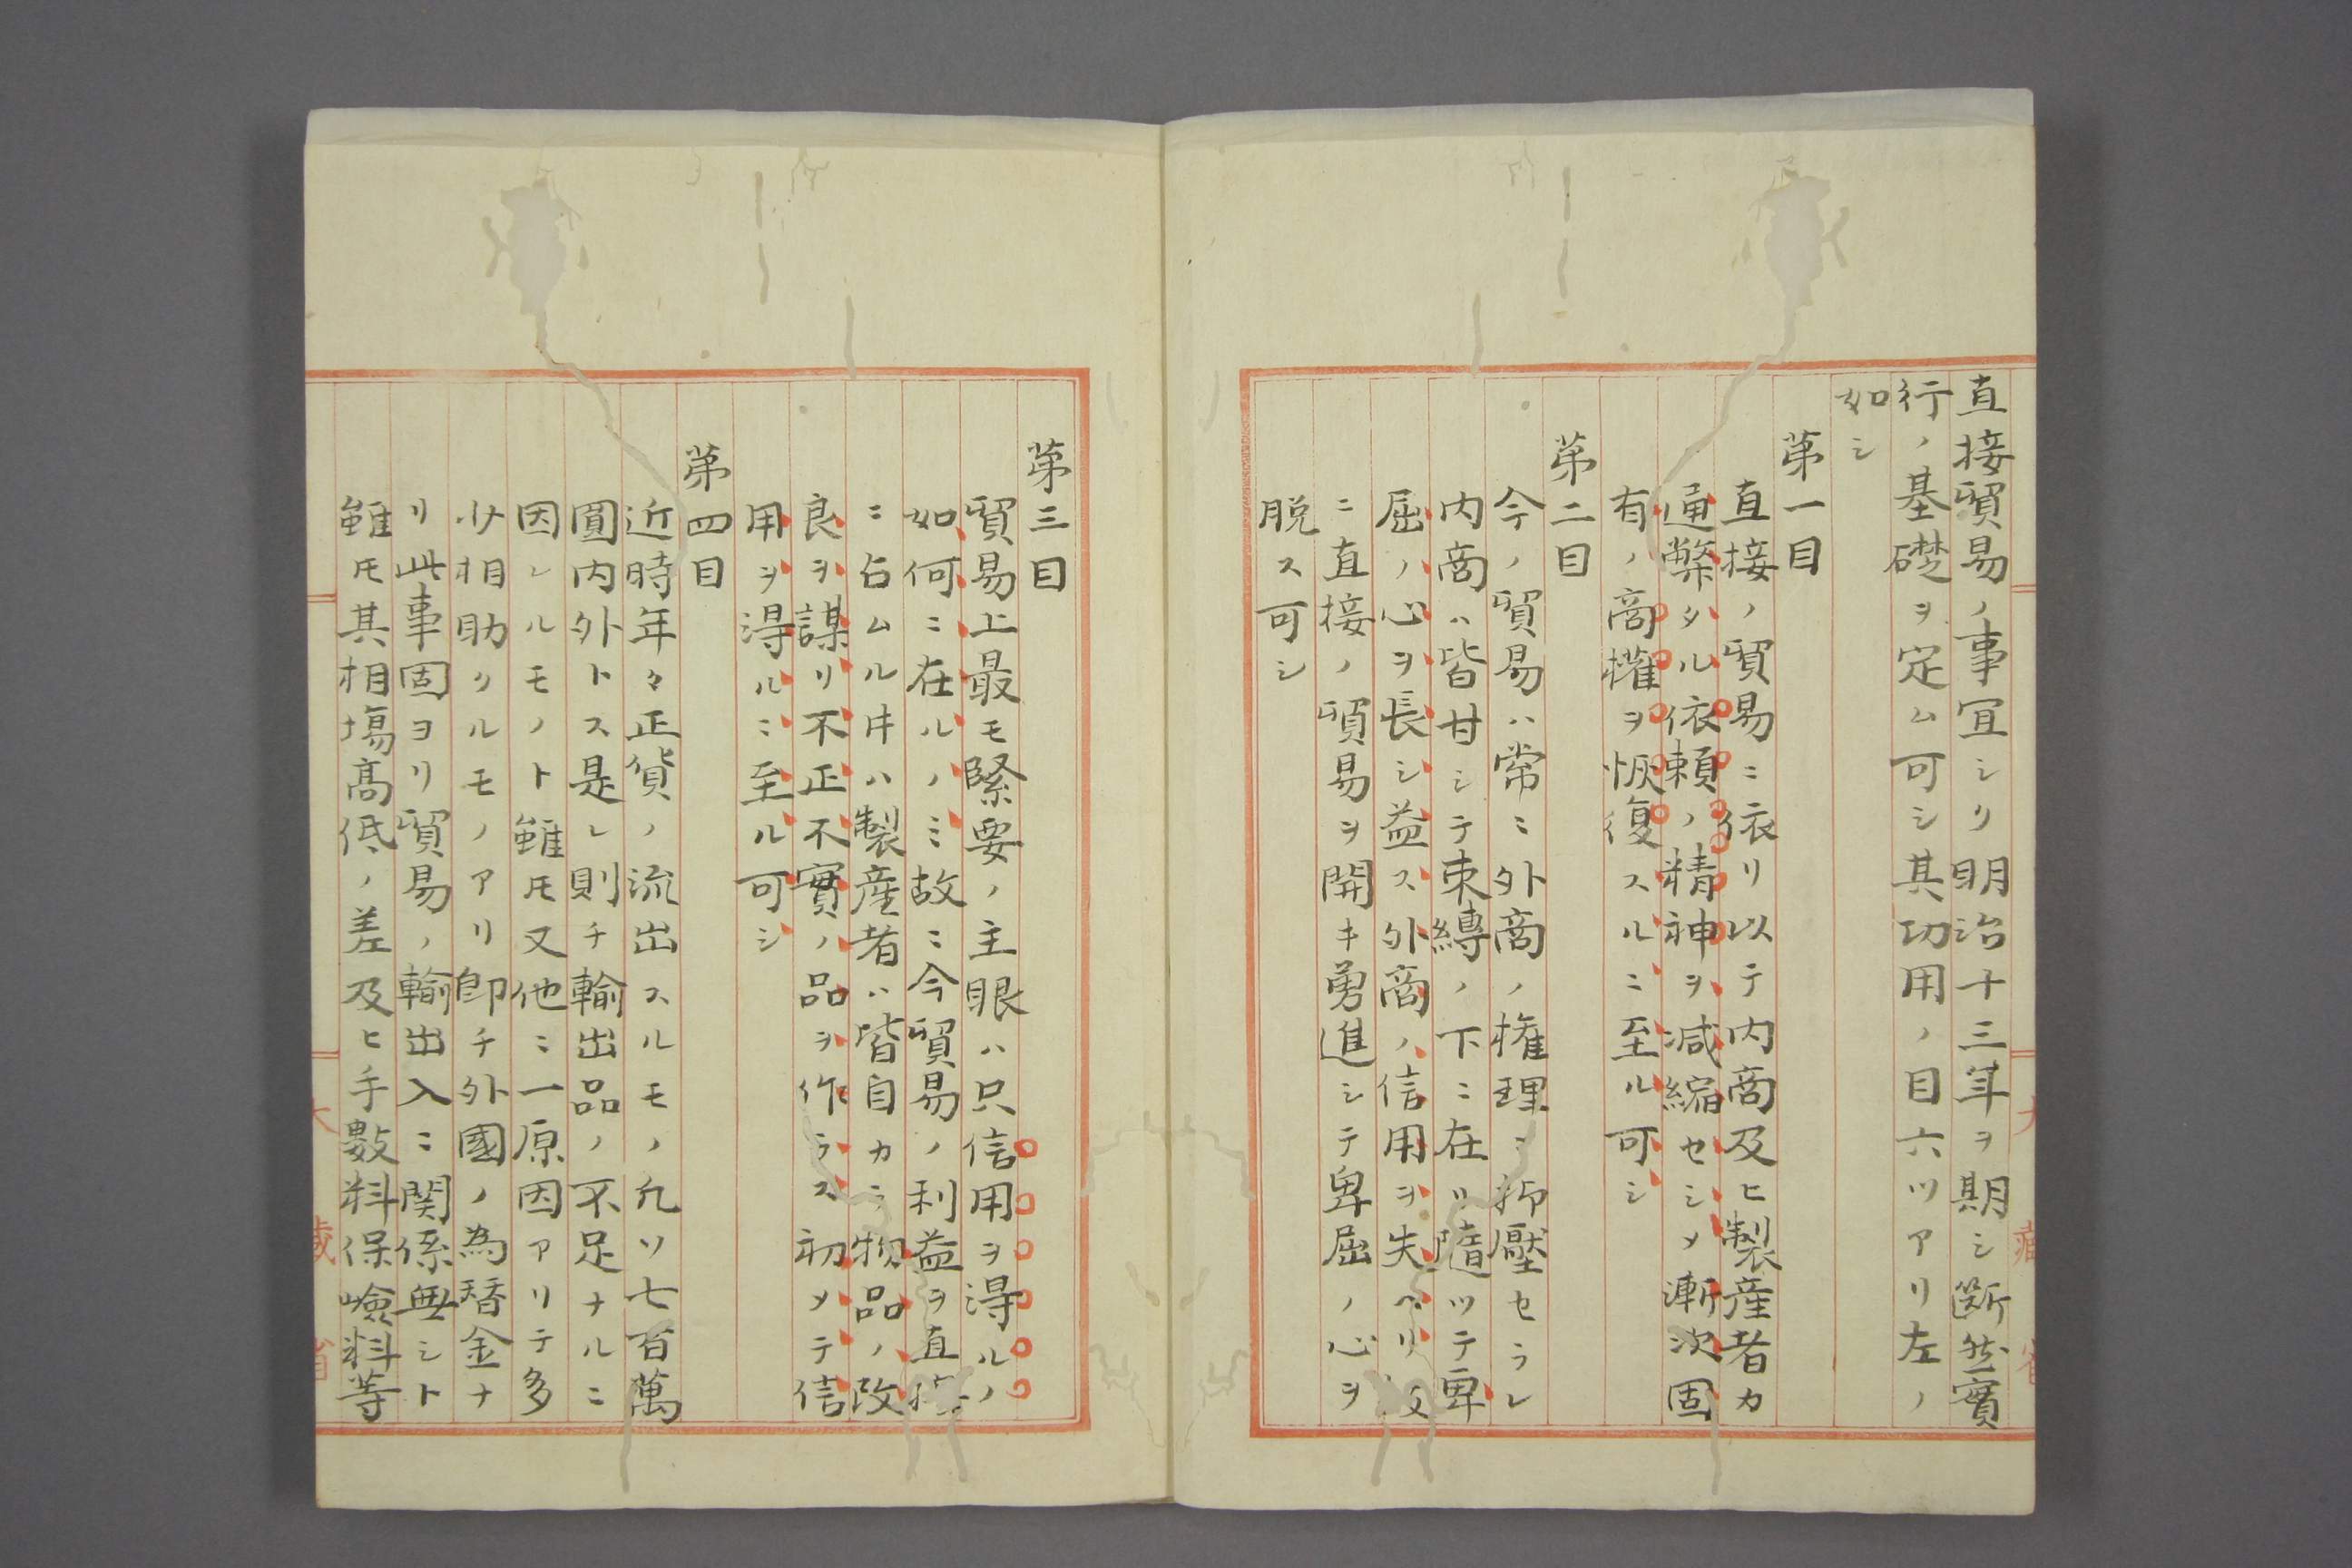 直接貿易ノ事宜シリ明治十三年ヲ期シ断然實
行ノ基礎ヲ定ム可シ其功用ノ目六ツアリ左ノ
如シ
第一目
直接ノ貿易ニ依リ以テ内商及ヒ製産者カ
通弊タル依頼ノ精神ヲ減縮セシメ漸次固
有ノ商権ヲ恢復スルニ至ル可シ
第二目
今ノ貿易ハ常ニ外商ノ権理ニ抑壓セラレ
内商ハ皆甘シテ束縛ノ下ニ在リ隨ツテ卑
屈ノ心ヲ長シ益ス外商ノ信用ヲ失ヘリ故
ニ直接ノ貿易ヲ開キ勇進シテ卑屈ノ心ヲ
脱ス可シ
第三目
貿易上最モ緊要ノ主眼ハ只信用ヲ得ルノ
如何ニ在ルノミ故ニ今貿易ノ利益ヲ直接
ニ占ムル㐧ハ製産者ハ皆自カラ物品ノ改
良ヲ謀リ不正不實ノ品ヲ作ラス初メテ信
用ヲ得ルニ至ル可シ
第四目
近時年々正貨ノ流出スルモノ凡ソ七百萬
圓内外トス是レ則チ輸出品ノ不足ナルニ
因レルモノト雖𪜈又他ニ一原因アリテ多
少相助クルモノアリ卽チ外國ノ為替金ナ
リ此事固ヨリ貿易ノ輸出入ニ関係無シト
雖𪜈其相塲高低ノ差及ヒ手數料保嶮料等
大藏省